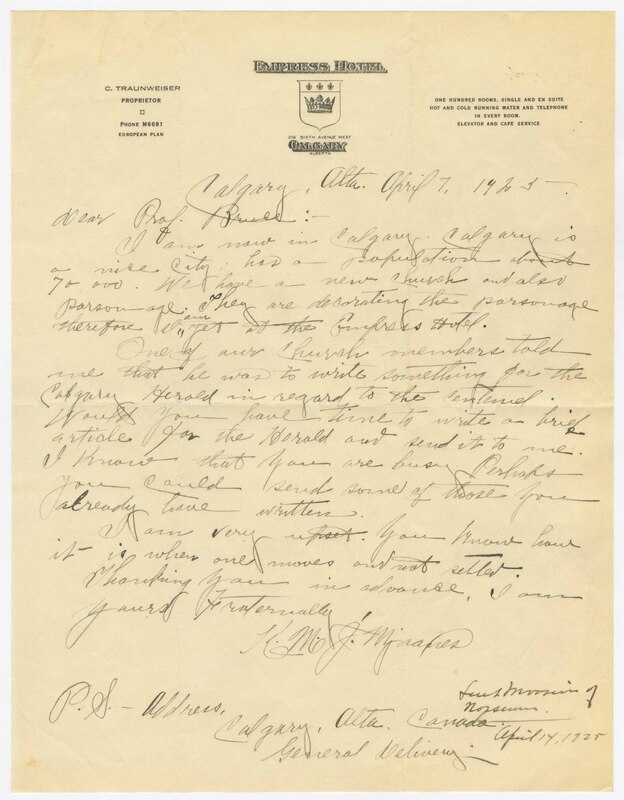 EMPRESS HOTEL
C. TRAUNWEISER
PROPRIETOR
PHONE M6691
EUROPEAN PLAN
ONE HUNDRED ROOMS, SINGLE AND EN SUITE
HOT AND COLD RUNNING WATER AND TELEPHONE
IN EVERY ROOM.
ELEVATOR AND CAFE SERVICE
219 SIXTH AVENUE WEST
CALGARY
ALBERTA
Calgary, Alta. April 7, 1925-
Dear Prof. Bruce:-
I am now in Calgary. Calgary is
a nice city; has a population about
70,000. We have a new Church and also
parsonage. They are decorating the parsonage
therefore I am yet at the Empress Hotel.
One of our Church members told
me that he was to write something for the
Calgary Herald in regard to the Centennel.
Would you have time to write a brief
article for the Herald and send it to me.
I know that you are busy. Perhaps
you could send some of those you
already have written.
I am very upset. You know how
it is when one moves and not settled.
Thanking you in advance, I am
Yours Fraternally
H. M. J.
P.S. - Address,
Calgary, Alta. Canada.
General Delivery.
Sent of
April 14, 1925